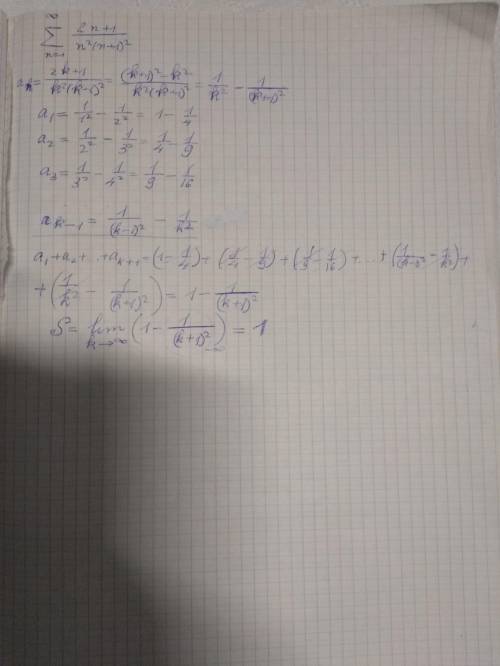 ∞
∑ (2n+1)/(n²(n+1)²)
n=1
aₖ = (2k+1)/(k²(k+1)²) = ((k+1)²-k²)/(k²(k+1)²) = 1/k² - 1/(k+1)²
a₁ = 1/1² - 1/2² = 1 - 1/4
a₂ = 1/2² - 1/3² = 1/4 - 1/9
a₃ = 1/3² - 1/4² = 1/9 - 1/16
aₖ₋₁ = 1/(k-1)² - 1/k²
a₁+a₂+...+aₖ₊₁ = (1-1/4) + (1/4-1/9) + (1/9-1/16) + ... + (1/(k-1)² - 1/k²) +
+ (1/k² - 1/(k+1)²) = 1 - 1/(k+1)²
S = lim k→∞ (1 - 1/(k+1)²) = 1